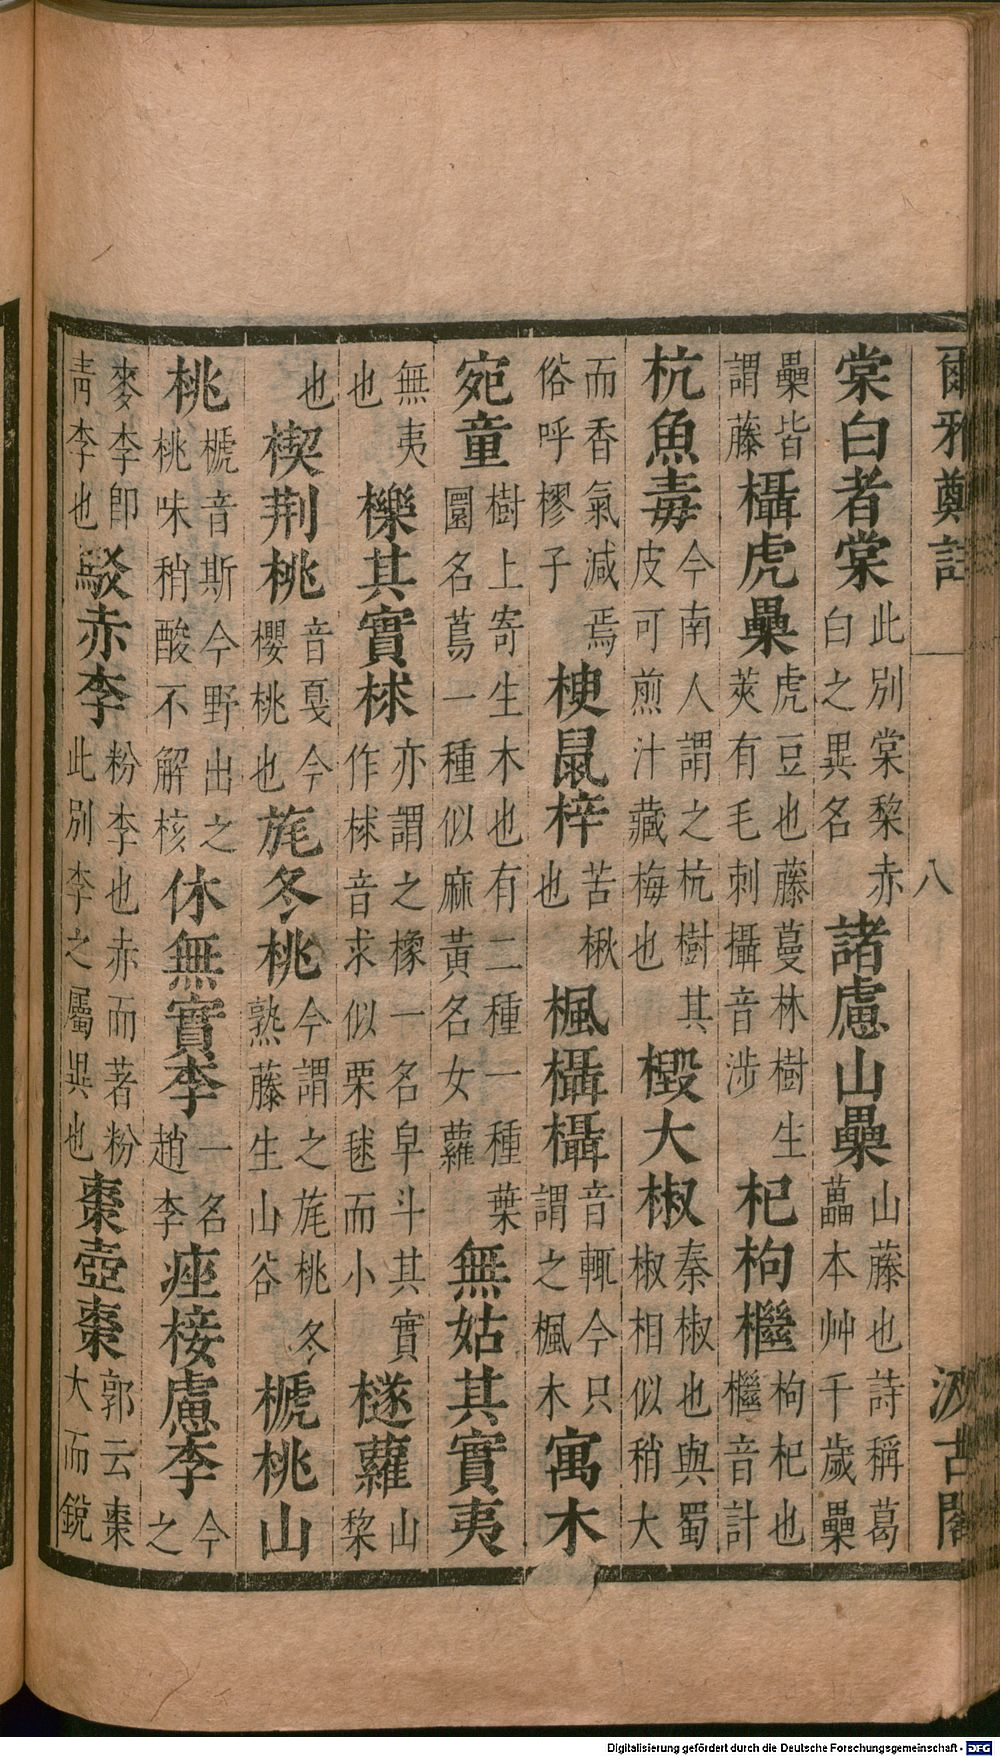 爾雅鄭註 八 汲古閣
棠白者棠此別棠棃赤白之異名諸慮山櫐山藤也詩稱葛藟本艸千歲櫐
櫐皆謂藤欇虎櫐虎豆也藤蔓林樹生莢有毛刺攝音涉杞枸檵枸杞也檵音計
杭魚毒今南人謂之杭樹其皮可煎汁藏梅也檓大椒秦椒也與蜀椒相似稍大
而香氣減焉俗呼樛子楰鼠梓苦楸也楓欇欇音輒今只謂之楓木寓木
宛童樹上寄生木也有二種一種葉圜名蔦一種似麻黃名女蘿無姑其實夷
無夷也櫟其實梂亦謂之橡一名皁斗其實作梂音求似栗毬而小檖蘿山棃
也楔荆桃音戛今櫻桃也旄冬桃今謂之旄桃冬熟藤生山谷榹桃山
桃榹音斯今野出之桃味稍酸不解核休無實李一名趙李痤椄慮李今之
麥李卽青李也駁赤李粉李也赤而著粉此別李之屬異也棗壺棗郭云棗大而銳
Digitalisierung gefördert durch die Deutsche Forschungsgemeinschaft - DFG